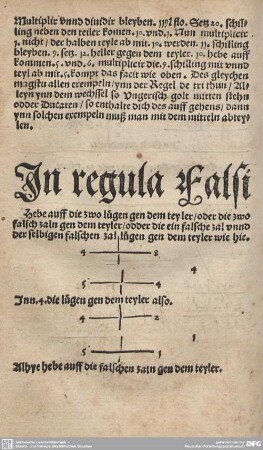 Multiplir vnnd diuidir bleyben. 119½ flo. Setz 20. schil-
ling neben den teiler komen. 10. vnd. 3. Nun multiplicir
3. nicht/ der halben teyle ab mit. 10. werden. 11. schilling
bleyben. 9. setz. 12. heller gegen dem teyler. 10. hebe auff
kommen. 5. vnd. 6. multiplicir die. 9. schilling mit vnnd
teyl ab mit. 5. kompt das facit wie oben. Des gleychen
magstu allen exempeln/ ynn der Regel de tri thun/ Al-
leyn ynn dem wechssel so Vngerisch golt mitten stehn
odder Ducaten/ so enthalte dich des auff gehens/ dann
ynn solchen exempeln muß man mit dem mitteln abtey-
len.
In regula Falsi
Hebe auff die zwo lügen gen dem teyler/ oder die zwo
falsch zaln gen dem teyler/ odder die ein falsche zal vnnd
der selbigen falschen zal lügen gen dem teyler wie hie.
4 8
4
5 1
Inn. 4. die lügen gen dem teyler also.
4 8
5 1
Alhye hebe auff die falschen zaln gen dem teyler.